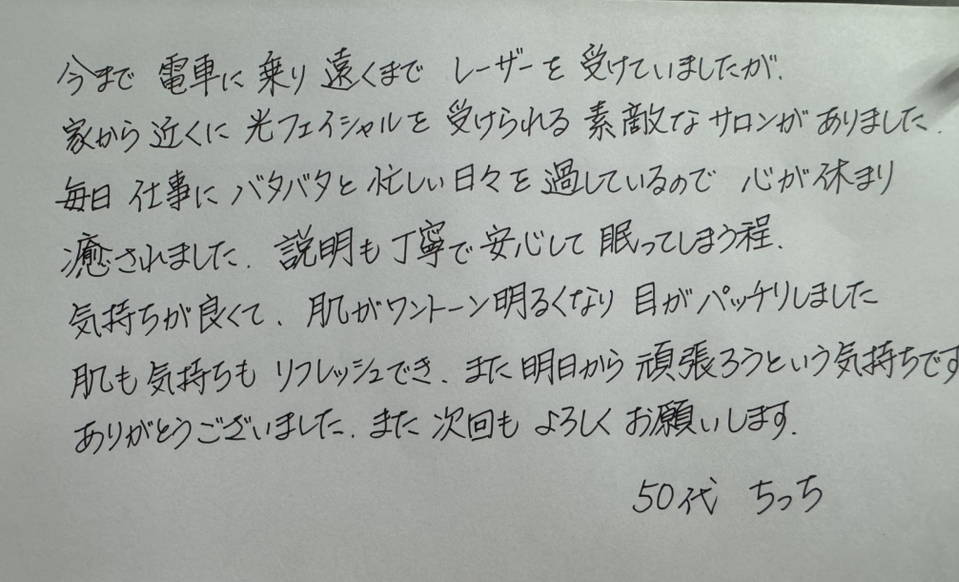 今まで 電車に 乗り 遠くまで レーザーを 受けていましたが、
家から 近くに 光フェイシャルを 受けられる 素敵な サロンが ありました。
毎日 仕事に バタバタと 忙しい 日々を 過しているので 心が 休まり
癒されました。説明も 丁寧で 安心して 眠ってしまう 程、
気持ちが 良くて、肌が ワントーン 明るくなり 目が パッチリしました
肌も 気持ちも リフレッシュでき、また 明日から 頑張ろうという 気持ちです
ありがとうございました。また 次回も よろしく お願いします。
50代 ちっち